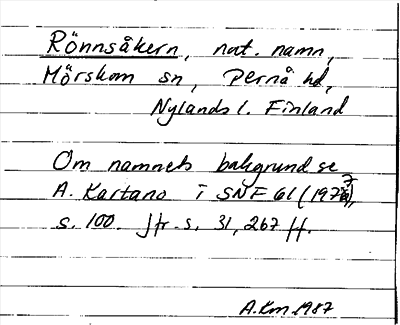 Rönnsåkern, nat. namn,
Mörskom sn, Pernå hd,
Nylands l. Finland
Om namnets bakgrund se
A. Kartano i SNF 61 (1973),
s. 100. Jfr s. 31, 267 ff.
A.Km 1987